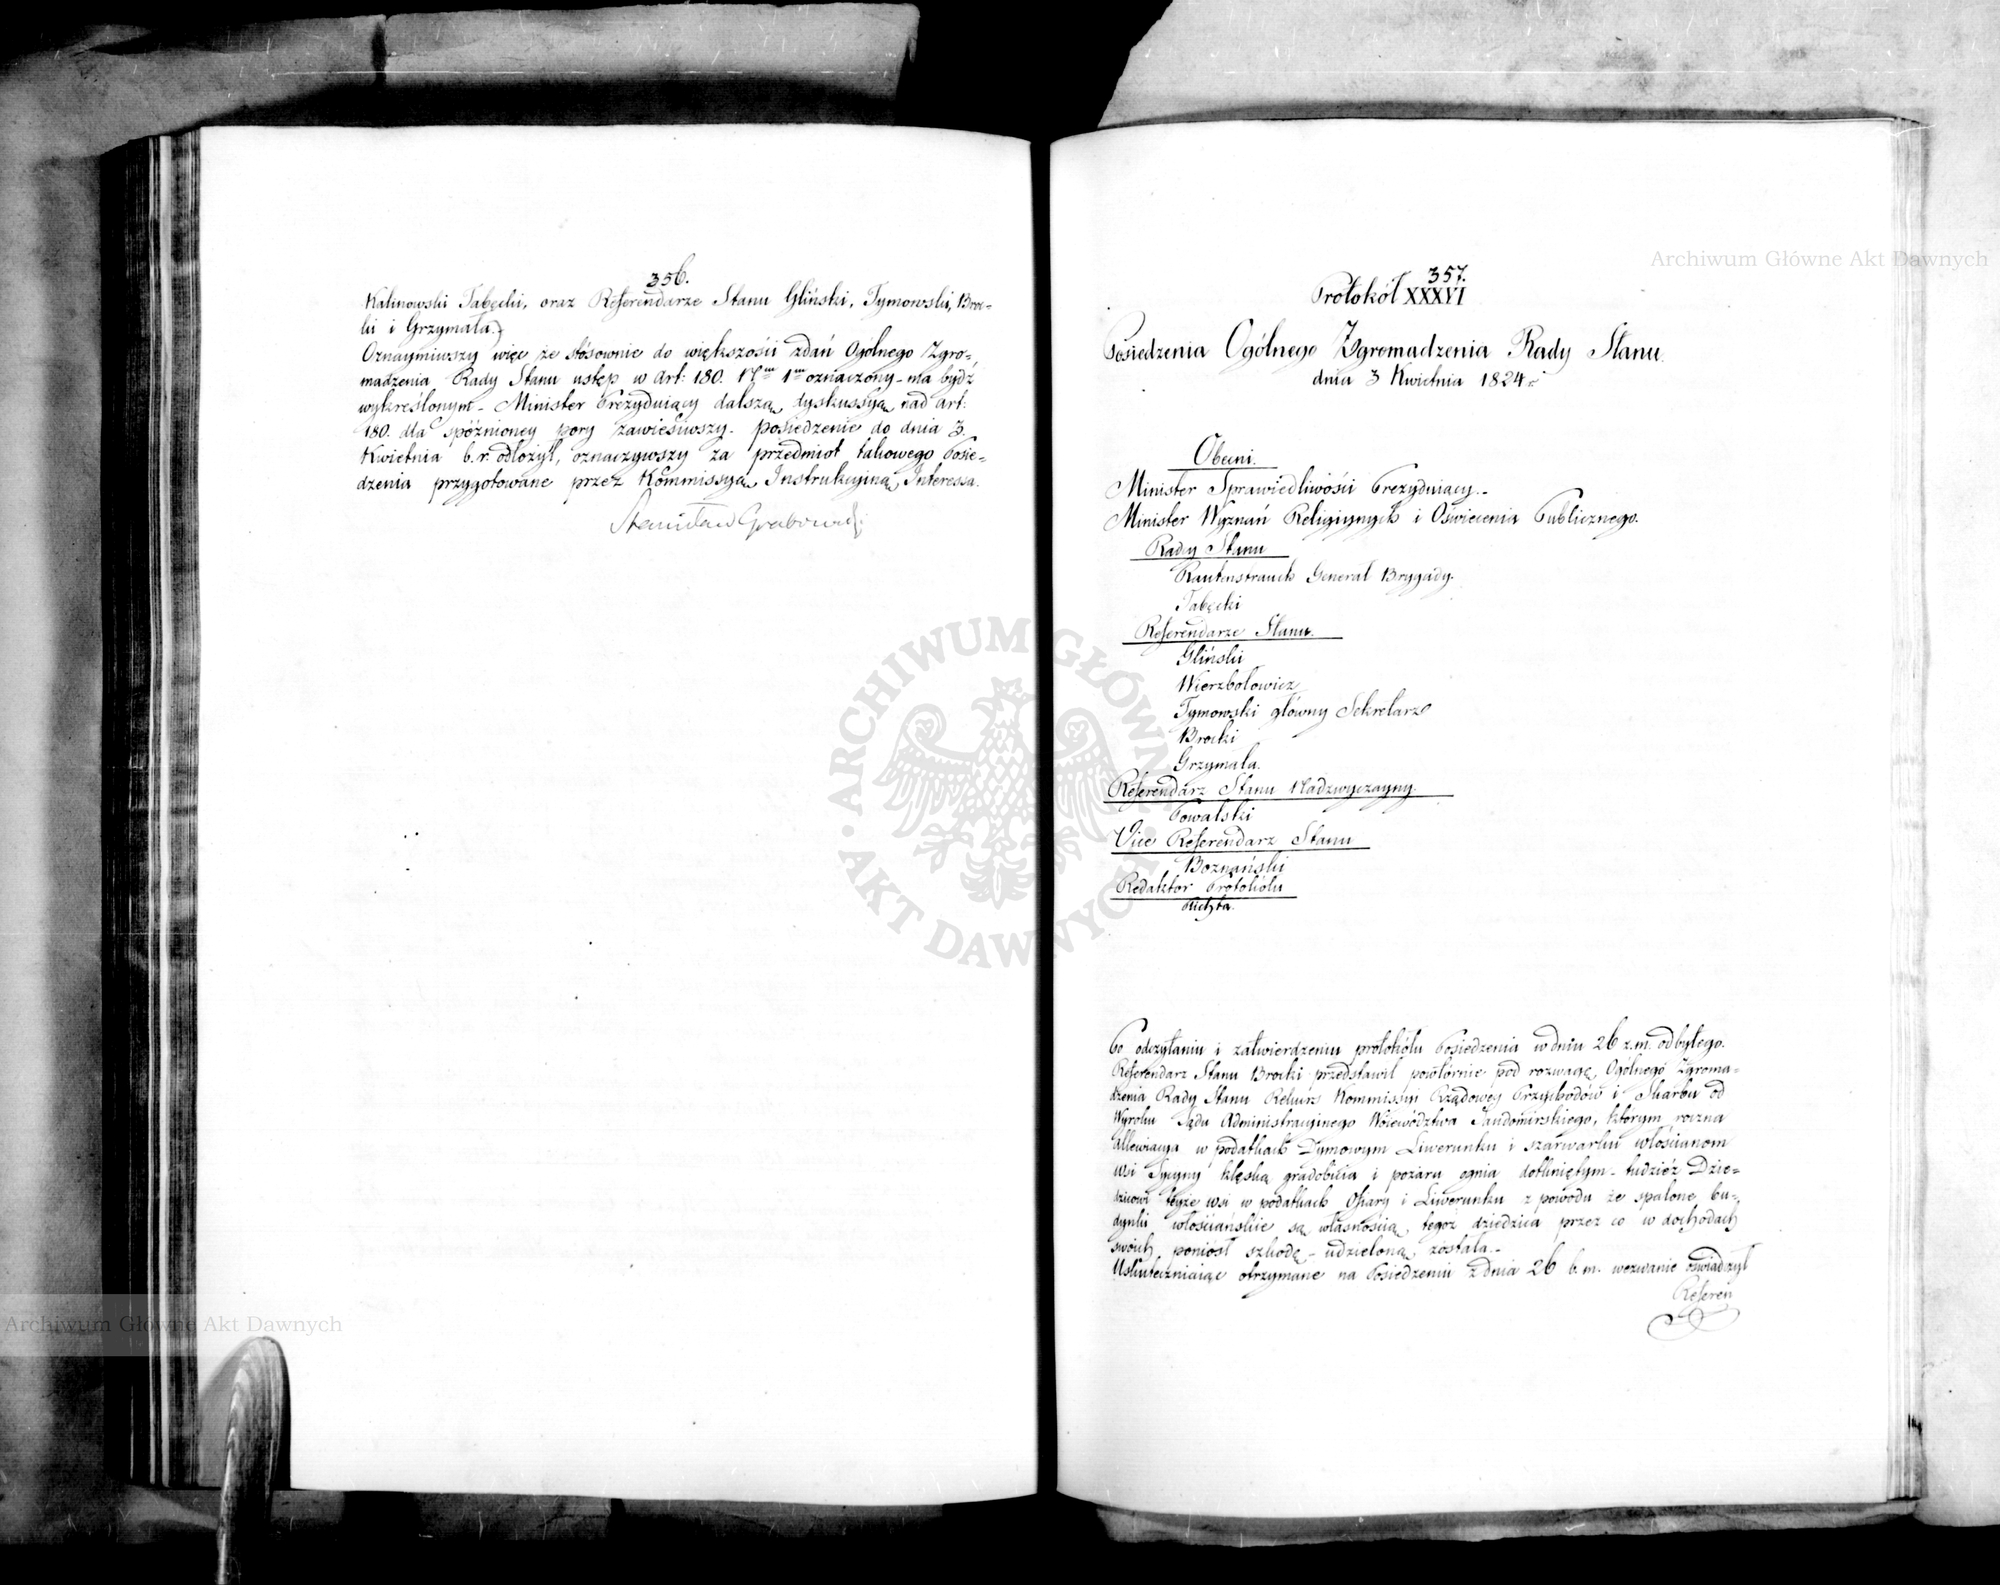 356.
Kalinowski Tabęcki, oraz Referendarze Stanu Gliński, Tymowski, Broc-
ki i Grzymała.
Oznaymiwszy więc że stósownie do większości zdań Ogólnego Zgro-
madzenia Rady Stanu ustęp w Art: 180. Nrm 1m oznaczony - ma bydź
wykreślonym - Minister Prezyduiący dalszą dyskussyą nad art:
180. dla spóźnioney pory zawiesiwszy - posiedzenie do dnia 3.
Kwietnia b. r. odłożył, oznaczywszy za przedmiot takowego Posie-
dzenia przygotowane przez Kommissyą Instrukcyiną Interessa.
Stanisław Grabowski
357.
Protokół XXXVI
Posiedzenia Ogólnego Zgromadzenia Rady Stanu.
dnia 3 Kwietnia 1824 r.
Obecni.
Minister Sprawiedliwości Prezyduiący.-
Minister Wyznań Religiynych i Oświecenia Publicznego.
Rady Stanu
Rautenstrauch Generał Brygady.
Tabęcki
Referendarze Stanu.
Gliński
Wierzbołowicz
Tymowski główny Sekretarz
Brocki
Grzymała.
Referendarz Stanu Nadzwyczayny.
Kowalski
Vice Referendarz Stanu
Boznański
Redaktor Protokółu
Puchta.
Po odczytaniu i zatwierdzeniu protokółu Posiedzenia w dniu 26 z. m. odbytego.
Referendarz Stanu Brocki przedstawił powtórnie pod rozwagę Ogólnego Zgroma-
dzenia Rady Stanu Rekurs Kommissyi Rządowey Przychodów i Skarbu od
Wyroku Sądu Administracyinego Województwa Sandomirskiego, którym roczna
allewiacya w podatkach Dymowym Liwerunku i szarwarku włościanom
wsi Sycyny klęską gradobicia i pożaru ognia dotkniętym - tudzież Dzie-
dzicowi teyże wsi w podatkach Ofiary i Liwerunku z powodu że spalone bu-
dynki włościańskie są własnością tegoż dziedzica przez co w dochodach
swoich poniósł szkodę - udzieloną została.-
Uskuteczniaiąc otrzymane na Posiedzeniu z dnia 26 b. m. wezwanie oświadczył
Referen
Archiwum Główne Akt Dawnych
Archiwum Główne Akt Dawnych
ARCHIWUM GŁÓWNE · AKT DAWNYCH ·